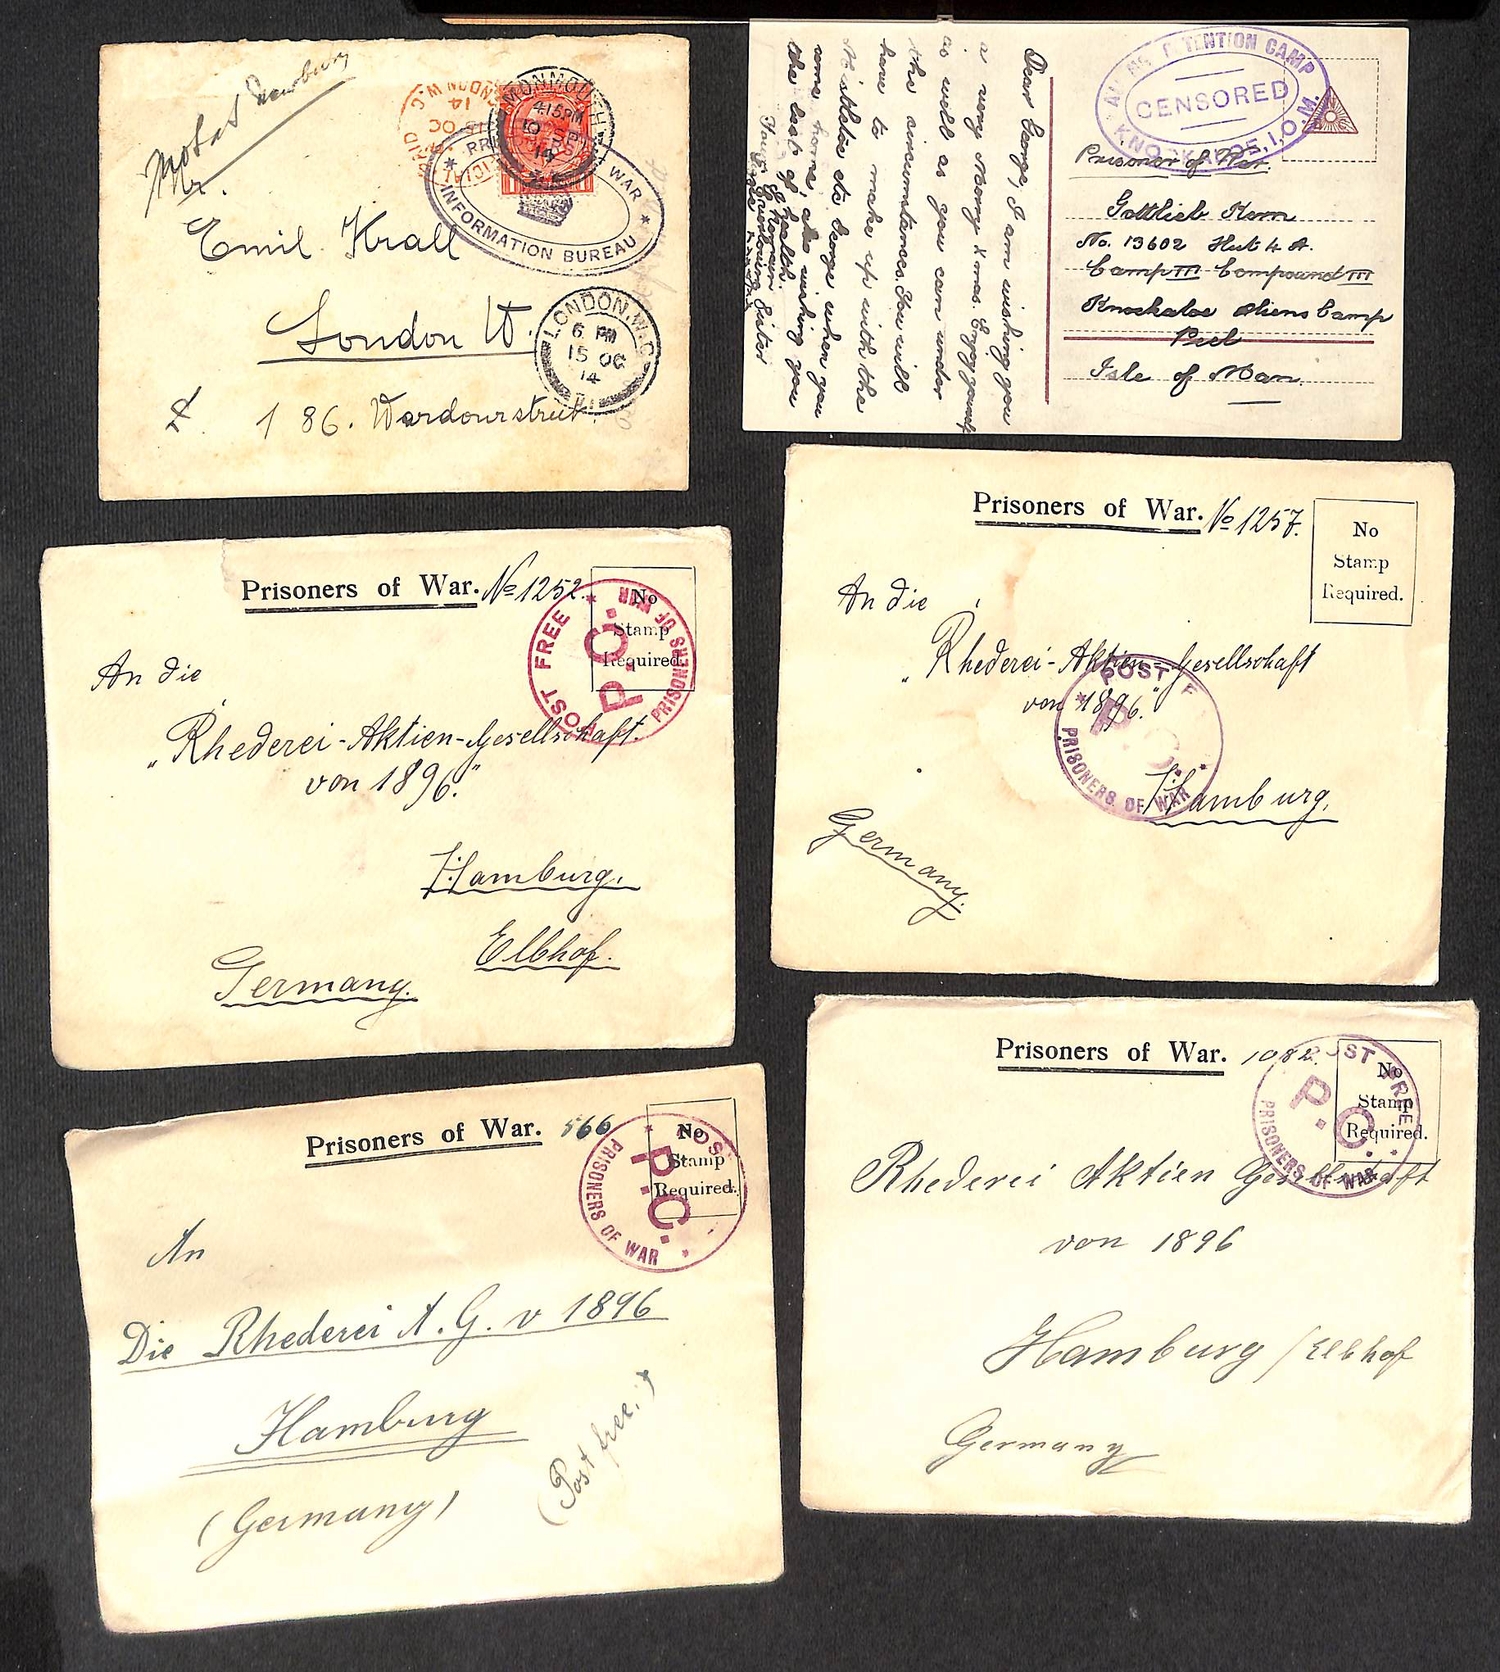 Noted Newbury
Mr.
Emil Krall
London W.
186. Wardourstreet.
MONMOUTH
4.15PM
14
WAR
INFORMATION BUREAU
LONDON. W.C.
6 PM
15 OC
14
Dear George, I am wishing you
a very Merry Xmas. Enjoy yourself
as well as you can under
the circumstances. You will
have to make up with the
when you
come home, also wishing you
the best of health.
Your
Sister
TENTION CAMP
CENSORED
KNOCKALOE, I.O.M.
Prisoner of War.
Gottlieb Korn
No. 13602 Hut 4 A.
Camp III Compound III
Knockaloe Aliens Camp
Peel
Isle of Man.
Prisoners of War. No 1252.
No
Stamp
Required.
POST FREE
P.C.
PRISONERS OF WAR
An die
"Rhederei-Aktien-Gesellschaft
von 1896."
Hamburg.
Elbhof.
Germany.
Prisoners of War. No 1257.
No
Stamp
Required.
An die
"Rhederei-Aktien-Gesellschaft
von 1896."
POST F
P.C.
PRISONERS OF WAR
Hamburg.
Germany.
Prisoners of War. 566
No
Stamp
Required.
POS
P.C.
PRISONERS OF WAR
An
Die Rhederei A.G. v 1896
Hamburg
(Germany)
(Post free.)
Prisoners of War. 1082.
No
Stamp
Required.
POST FREE
P.C.
PRISONERS OF WAR
Rhederei Aktien Gesellschaft
von 1896
Hamburg / Elbhof
Germany